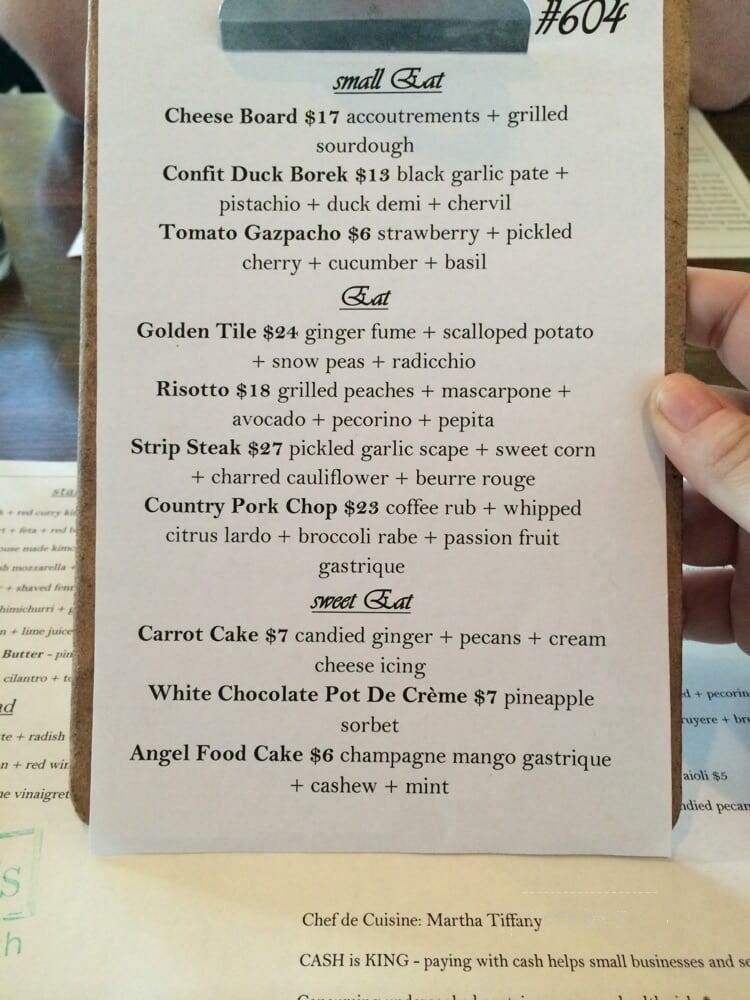 #604
small Eat
Cheese Board $17 accoutrements + grilled
sourdough
Confit Duck Borek $13 black garlic pate +
pistachio + duck demi + chervil
Tomato Gazpacho $6 strawberry + pickled
cherry + cucumber + basil
Eat
Golden Tile $24 ginger fume + scalloped potato
+ snow peas + radicchio
Risotto $18 grilled peaches + mascarpone +
avocado + pecorino + pepita
Strip Steak $27 pickled garlic scape + sweet corn
+ charred cauliflower + beurre rouge
Country Pork Chop $23 coffee rub + whipped
citrus lardo + broccoli rabe + passion fruit
gastrique
sweet Eat
Carrot Cake $7 candied ginger + pecans + cream
cheese icing
White Chocolate Pot De Crème $7 pineapple
sorbet
Angel Food Cake $6 champagne mango gastrique
+ cashew + mint
+ red curry
+ feta + red
made
mozzarella +
+ shaved
+ lime juice
Butter -
cilantro +
+ radish
+ red
+
aioli $5
Chef de Cuisine: Martha Tiffany
CASH is KING - paying with cash helps small businesses and